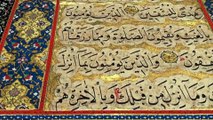 للمتقين الذين يؤمنون
بالغيب ويقيمون الصلوة ومما رزقناهم
ينفقون والذين يؤمنون بما انزل
وما انزل من قبلك وبالاخرة هم